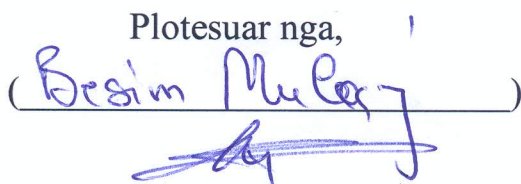 Plotesuar nga,
(Besim Mulaj)